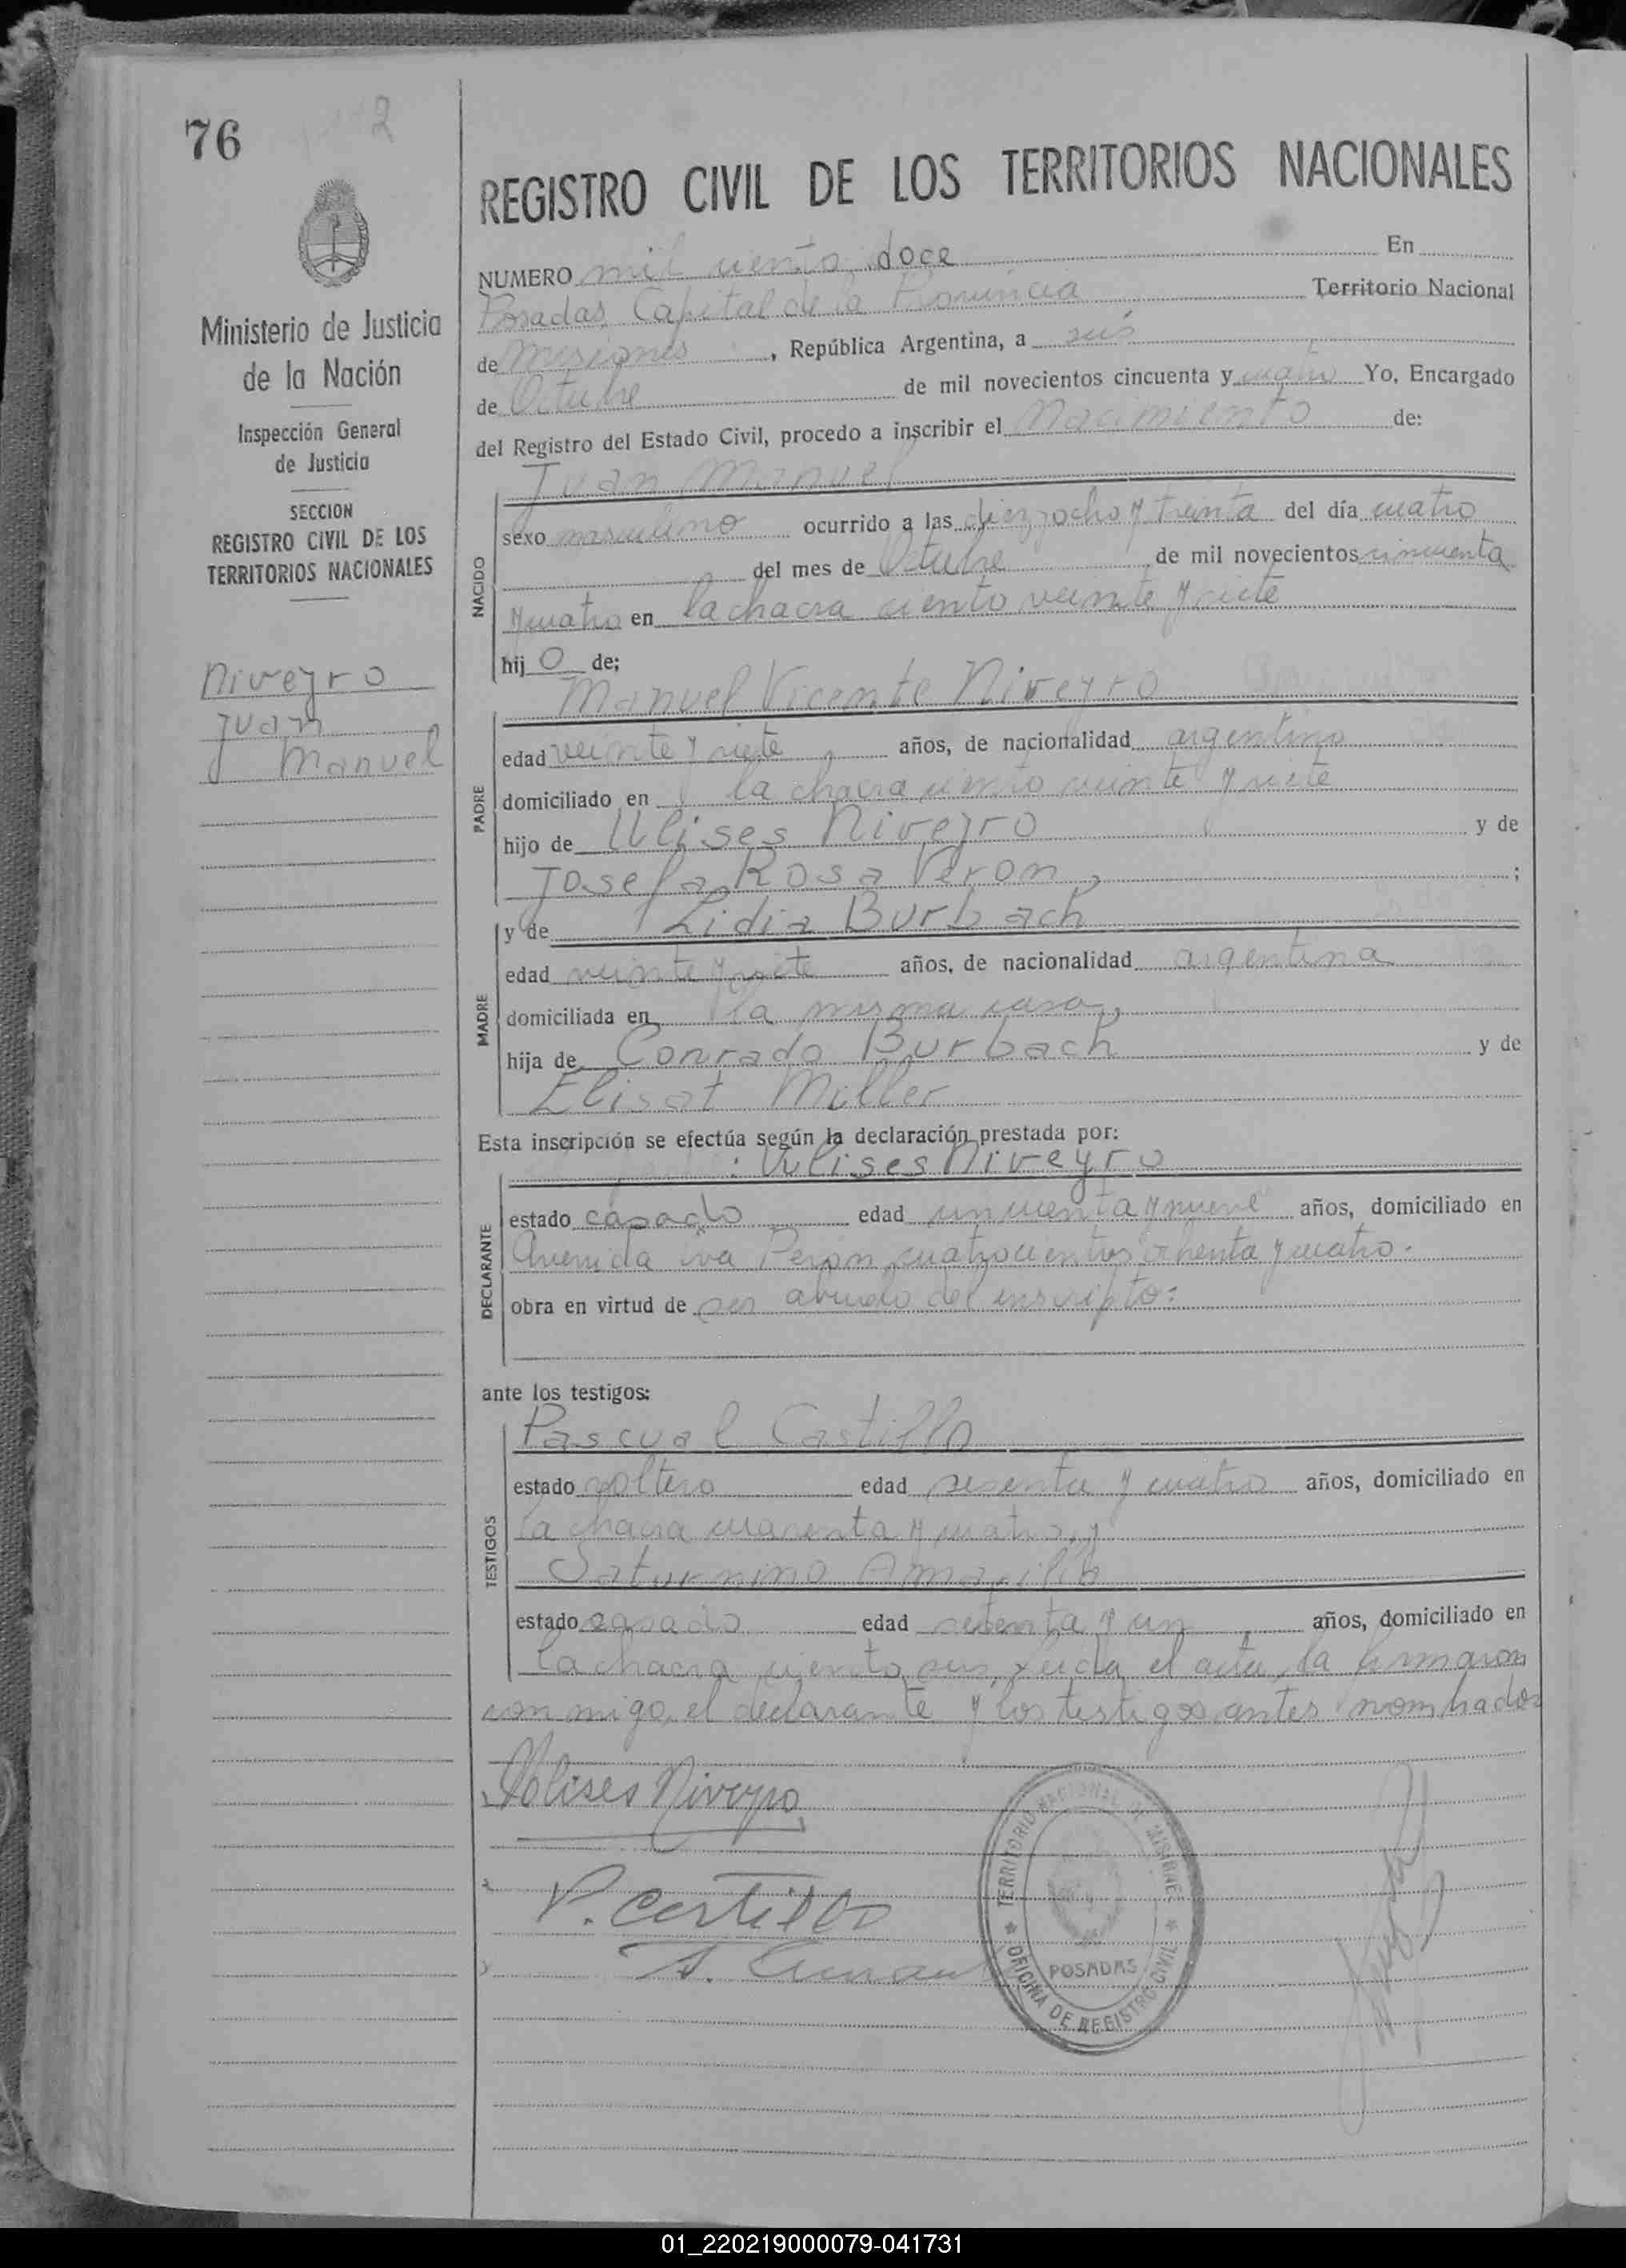 76
2
Ministerio de Justicia
de la Nación
Inspección General
de Justicia
SECCION
REGISTRO CIVIL DE LOS
TERRITORIOS NACIONALES
Niveyro
Juan
Manuel
REGISTRO CIVIL DE LOS TERRITORIOS NACIONALES
NUMERO mil ciento doce En
Posadas, Capital de la Provincia Territorio Nacional
de Misiones, República Argentina, a seis
de Octubre de mil novecientos cincuenta y cuatro Yo, Encargado
del Registro del Estado Civil, procedo a inscribir el Nacimiento de:
NACIDO
Juan Manuel
sexo masculino ocurrido a las diez y ocho y treinta del día cuatro
del mes de Octubre de mil novecientos cincuenta
y cuatro en la chacra ciento veinte y siete
hij o de;
PADRE
Manuel Vicente Niveyro
edad veinte y siete años, de nacionalidad argentino
domiciliado en la chacra ciento veinte y siete
hijo de Ulises Niveyro y de
Josefa Rosa Veron, ;
MADRE
y de Lidia Burbach
edad veinte y siete años, de nacionalidad argentina
domiciliada en la misma casa,
hija de Conrado Burbach y de
Elisat Miller
Esta inscripción se efectúa según la declaración prestada por:
DECLARANTE
: Ulises Niveyro
estado casado edad cincuenta y nueve años, domiciliado en
Avenida Eva Peron cuatrocientos ochenta y cuatro.
obra en virtud de ser abuelo del inscripto:
ante los testigos:
TESTIGOS
Pascual Castillo
estado soltero edad sesenta y cuatro años, domiciliado en
la chacra cuarenta y cuatro, y
Saturnino Amarilla
estado casado edad setenta y un años, domiciliado en
la chacra ciento seis, leida el acta, la firmaron
conmigo, el declarante y los testigos antes nombrados
Ulises Niveyro
P. Castillo
TERRITORIO NACIONAL DE MISIONES
POSADAS
OFICINA DE REGISTRO CIVIL
01_220219000079-041731